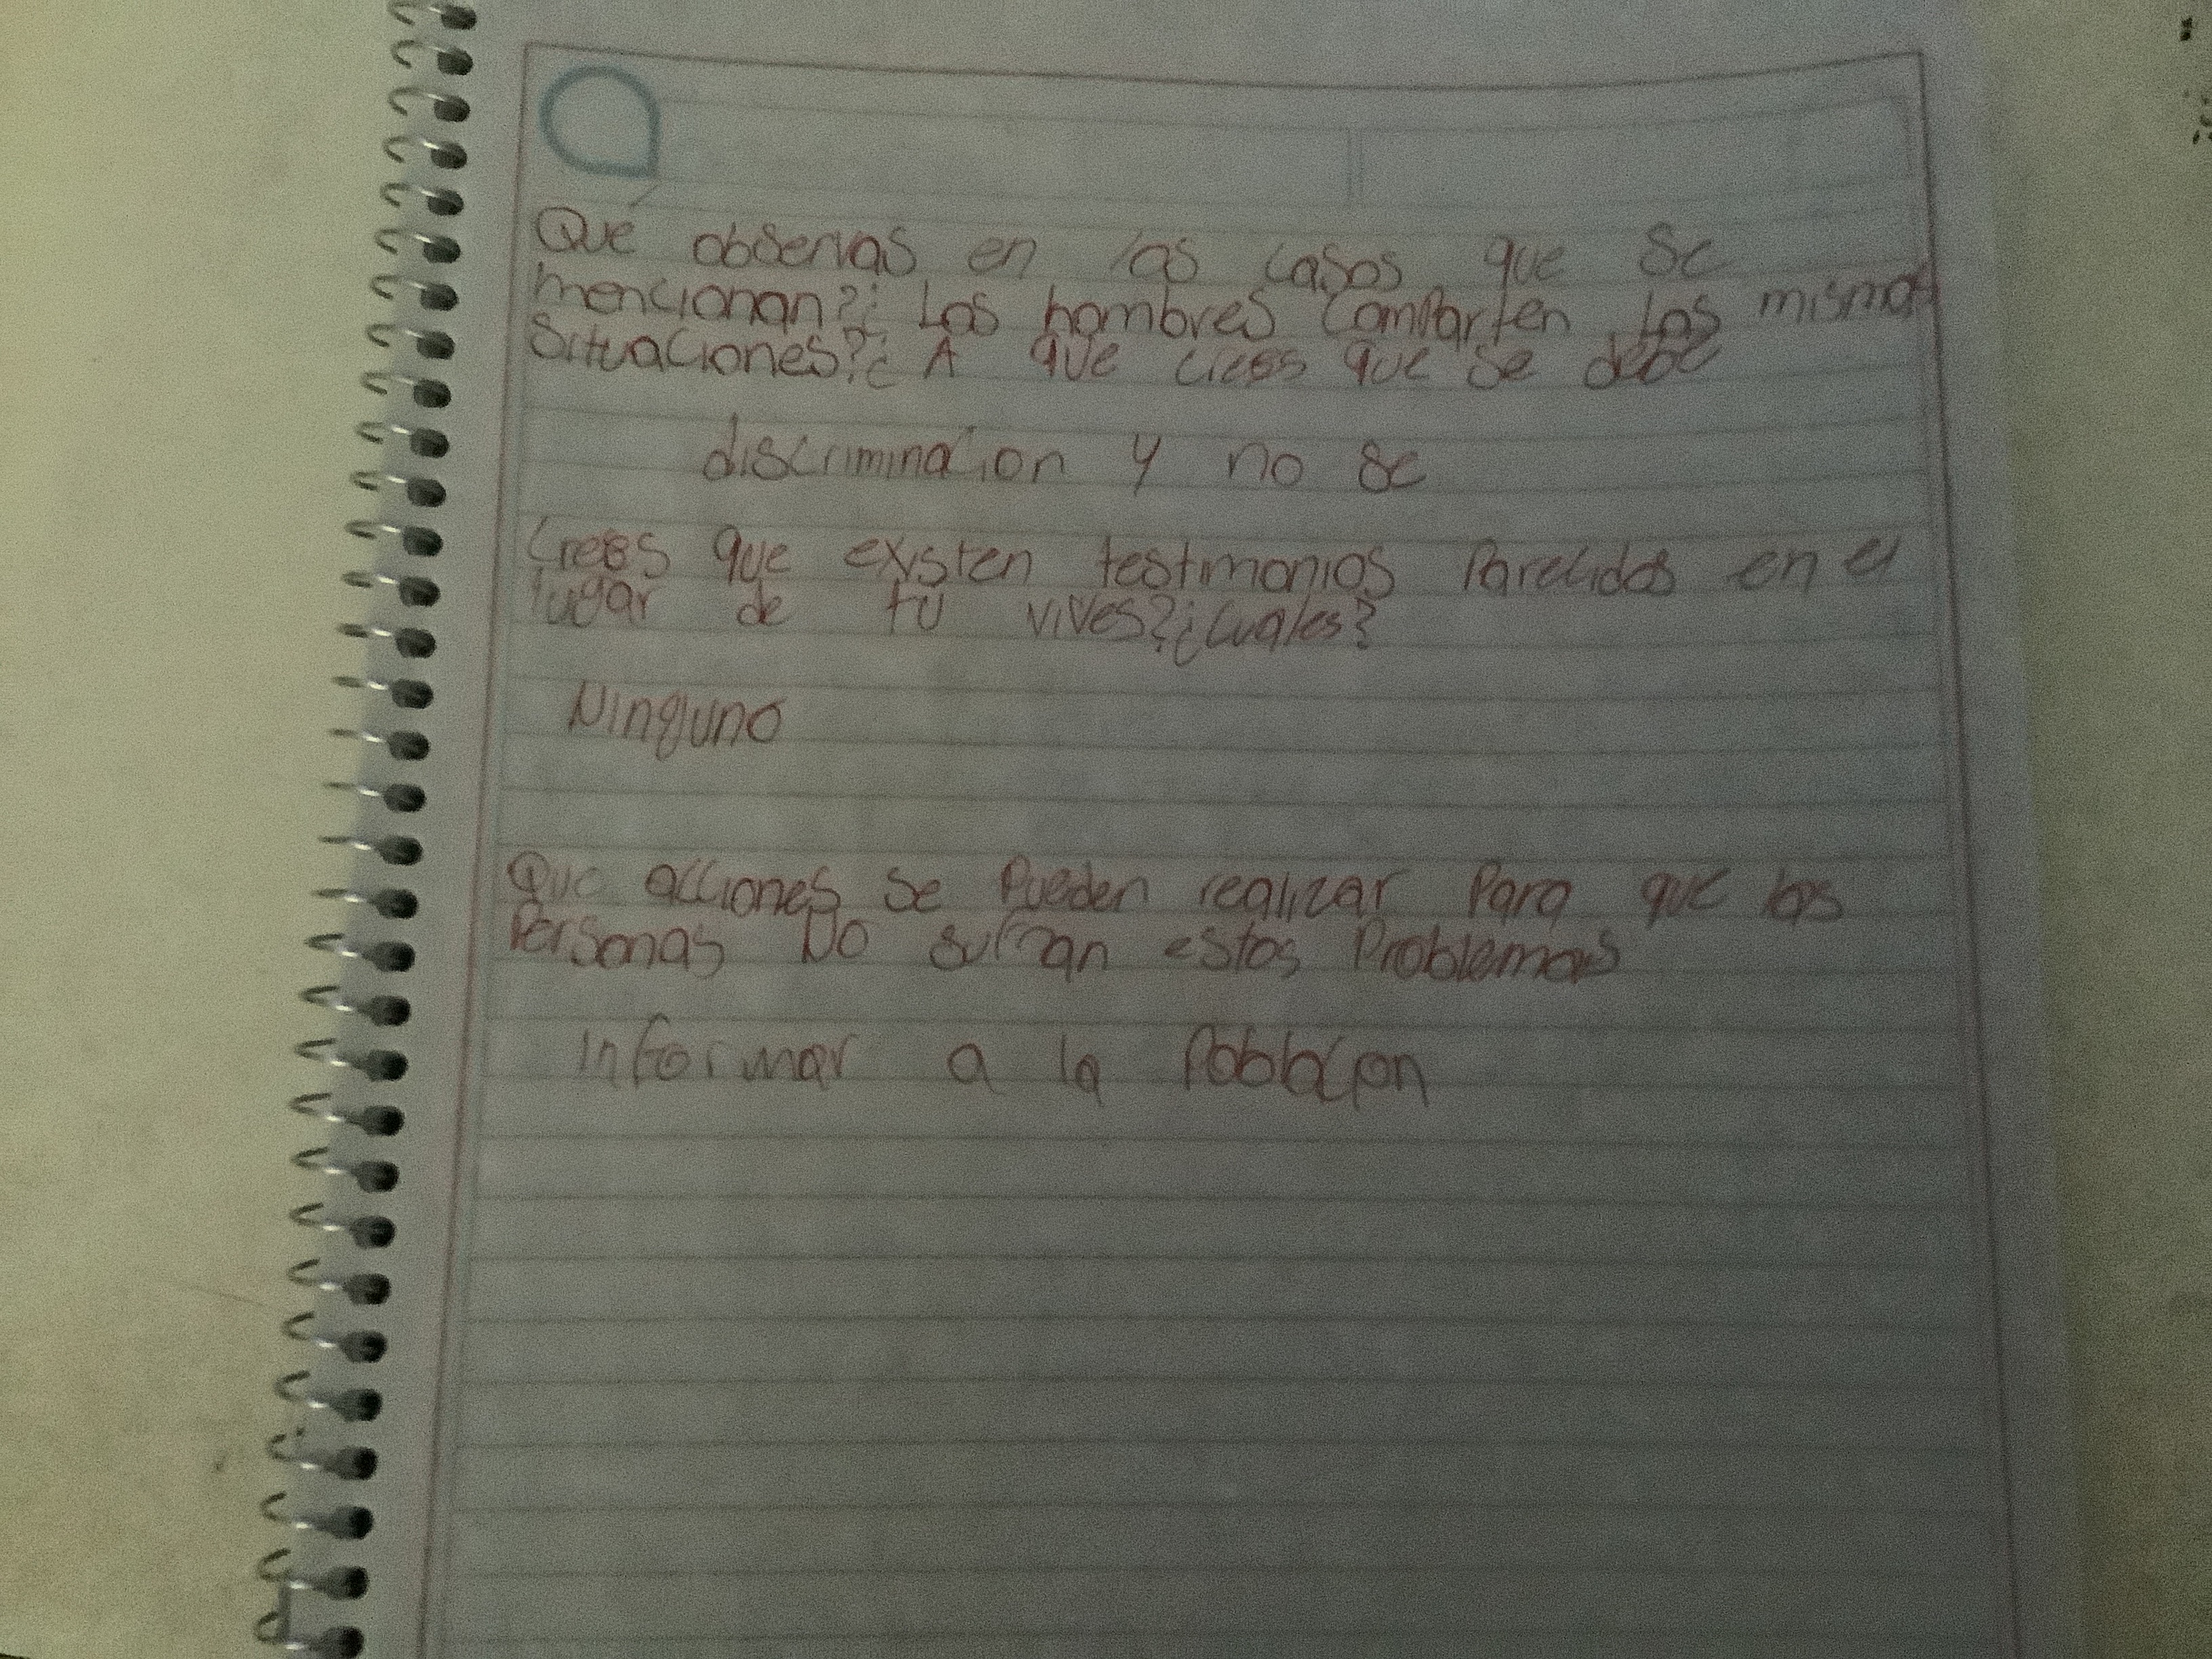 Qué observas en los casos que se
mencionan?¿ Los hombres comparten las mismas
situaciones?¿ A que crees que se debe
discriminacion y no se
Crees que existen testimonios Parecidos en el
lugar de tu vives?¿Cuales?
Ninguno
Que acciones se Pueden realizar Para que las
Personas No sufran estos Problemas
Informar a la